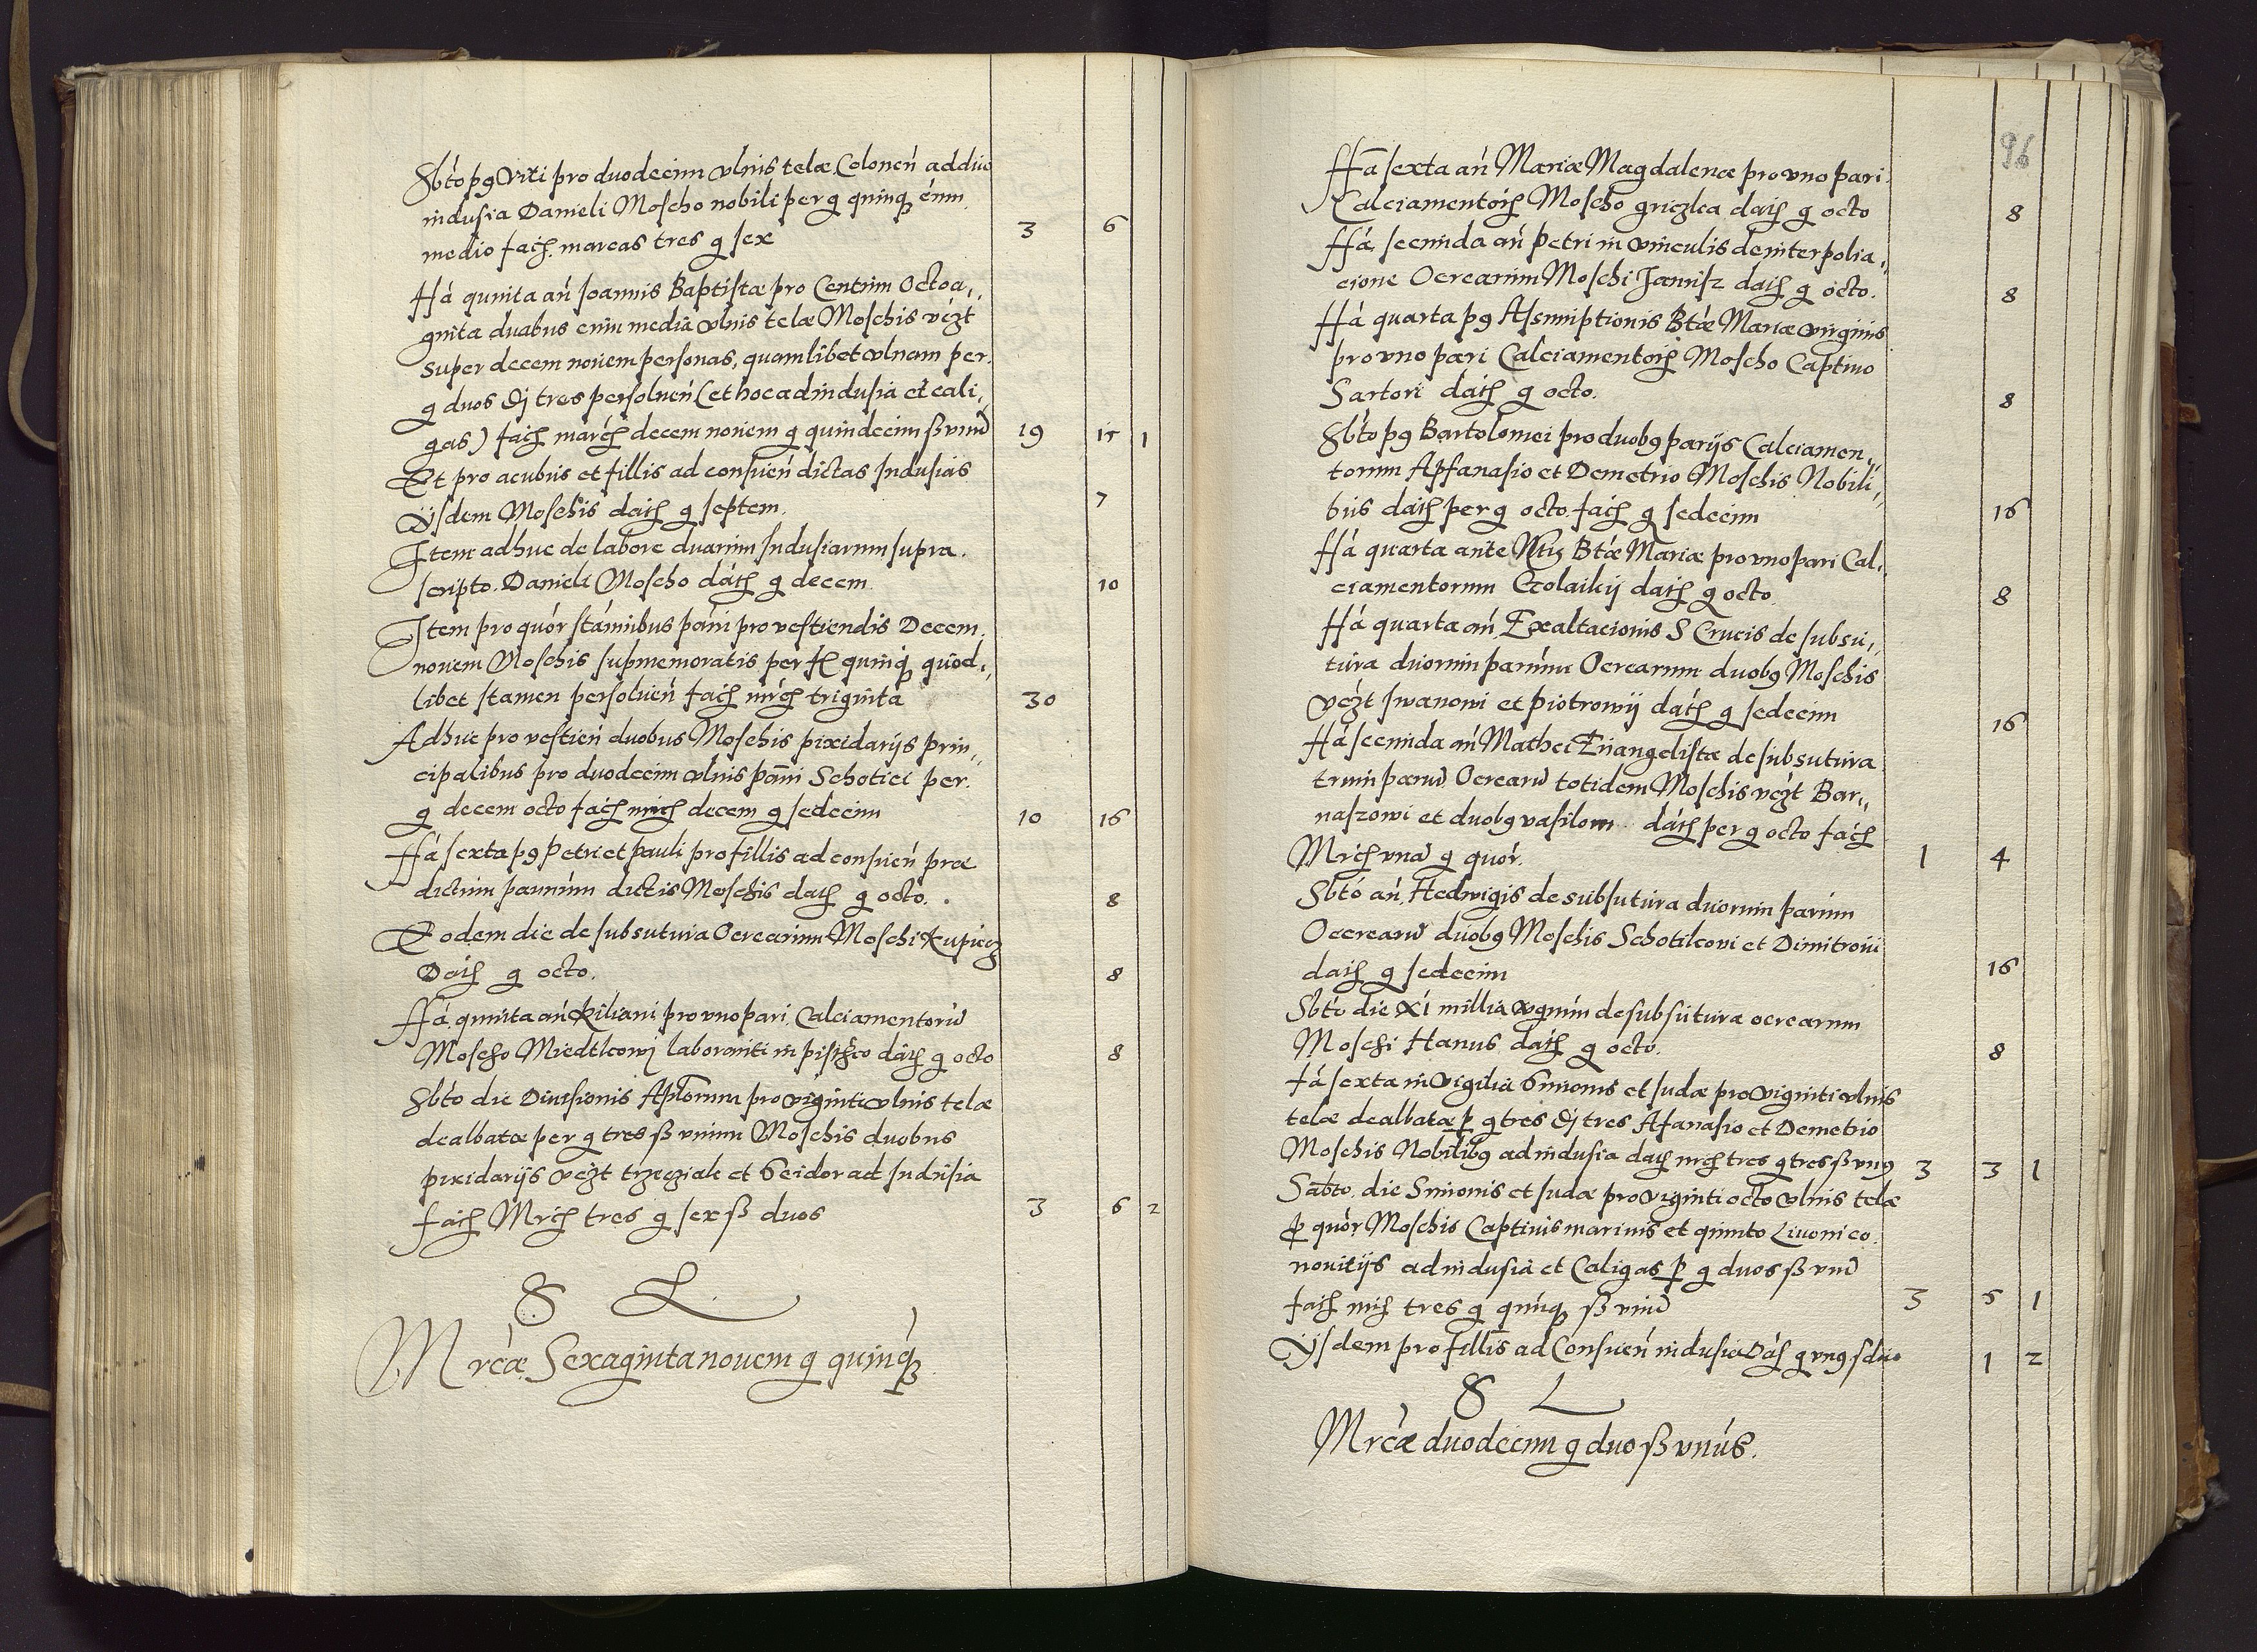 Sbto pg Viti pro duodecim ulnis telæ Colonen ad duo
indusia Danieli Moscho nobili per g quinq enim
medio facit marcas tres g sex 3 6
Ffa quinta an Joannis Baptistæ pro Centum Octoa,,
ginta duabus cum media ulnis telæ Moschis vczt
super decem novem personas, quamlibet ulnam per
g duos dj tres persoluen (et hoc ad indusia et cali,,
gas) facit march decem novem g quindecim ß unu 19 15 1
Et pro acubus et fillis ad consuen dictas Indusias
Iisdem Moschis datis g septem. 7
Item adhuc de labore duarum Indusiarum supra
scripto Danieli Moscho datis g decem 10
Item pro quor staminibus pani pro vestiendis Decem
novem Moschis supmemoratis per fl quinq quod,,
libet stamen persoluen facit mrch triginta 30
Adhuc pro vestien duobus Moschis pixidarijs prin,,
cipalibus pro duodecim ulnis pani Schotici per
g decem octo facit mrch decem g sedecim 10 16
Ffa sexta pg Petri et Pauli pro fillis ad consuen præ
dictum pannum dictis Moschis datis g octo. 8
Eodem die de subsutura Ocrearum Moschi Kupiecz
Datis g octo. 8
Ffa quinta an Kiliani pro uno pari Calciamentoru
Moscho Miedtkowj laboranti in datis g octo 8
Sbto die Divisionis Aplorum pro viginti ulnis telæ
dealbatæ per g tres ß unum Moschis duobus
pixidarijs vczt trzecziak et Seidor ad Indusia
facit Mrch tres g sex ß duos 3 6 2
S L
Mrcæ Sexaginta novem g quinq
96
Ffa sexta an Mariæ Magdalenæ pro uno pari
Calciamentorum Moscho griczka datis g octo 8
Ffa secunda an Petri in vinculis de interpolia,,
cione Ocrearum Moschi Janusz datis g octo. 8
Ffa quarta pg Assumptionis Btæ Mariæ virginis
pro uno pari Calciamentorum Moscho Captivo
Sartori datis g octo. 8
Sbto pg Bartolomei pro duobg parijs Calciamen,,
torum Apfanasio et Demetrio Moschis Nobili,,
bus datis per g octo facit g sedecim 16
Ffa quarta ante Ntis Btæ Mariæ pro uno pari Cal,,
ciamentorum datis g octo 8
Ffa quarta an Exaltacionis S Crucis de subsu,,
tura duorum parium Ocrearum duobg Moschis
vczt Iwanowi et Piotrowij datis g sedecim 16
Ffa secunda an Mathei Evangelistæ de subsutura
trium pariu Ocrearu totidem Moschis vczt Bar,,
naszowi et duobg vasilom datis per g octo facit
Mrch una g quor. 1 4
Sbto an Hedwigis de subsutura duorum parium
Ocrearu duobg Moschis Schotikowi et Dimitrowi
datis g sedecim 16
Sbto die XI millia vgnum de subsutura ocrearum
Moschi Hanus datis g octo. 8
Ffa sexta in vigilia Simonis et Judæ pro viginti ulnis
telæ dealbatæ p g tres dj tres Afanasio et Demetrio
Moschis Nobilibg ad indusia datis mrch tres g tres ß ung 3 3 1
Sabto die Simonis et Judæ pro viginti octo ulnis telæ
p quor Moschis Captivis marinis et quinto Livonico
novitijs ad indusia et Caligas p g duos ß unu
facit mrch tres g quinq ß unu 3 5 1
Iisdem pro fillis ad Consuen indusia Datis g ung s duo 1 2
S L
Mrcæ duodecim g duo ß unus.